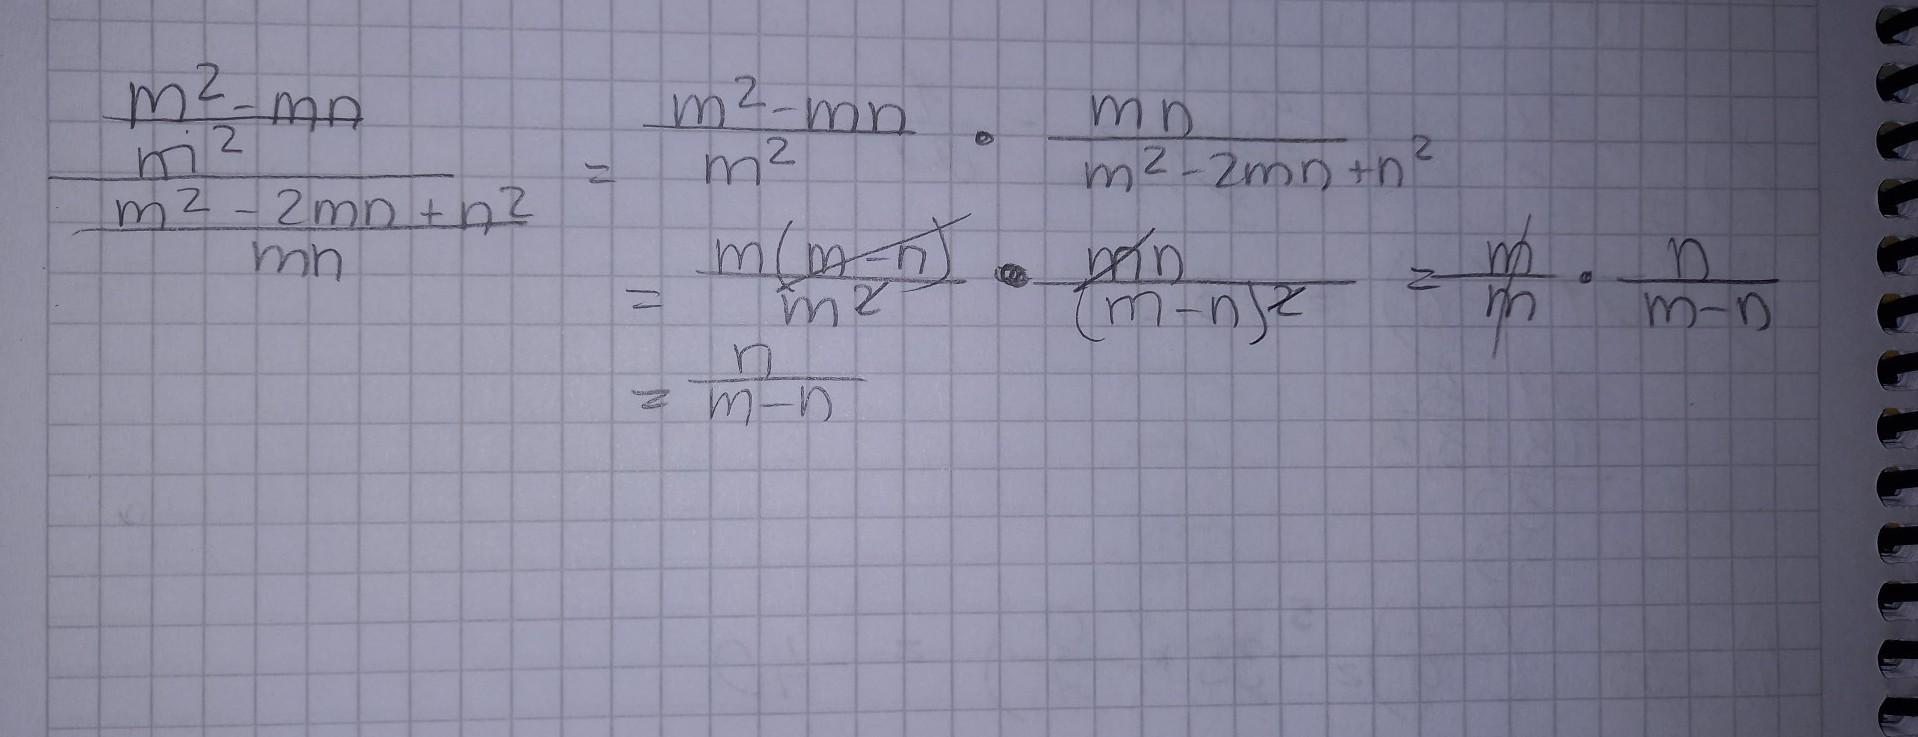 \frac{\frac{m^2-mn}{m^2}}{\frac{m^2-2mn+n^2}{mn}} = \frac{m^2-mn}{m^2} \cdot \frac{mn}{m^2-2mn+n^2}
= \frac{m(m-n)}{m^2} \cdot \frac{mn}{(m-n)^2} = \frac{m}{m} \cdot \frac{n}{m-n}
= \frac{n}{m-n}